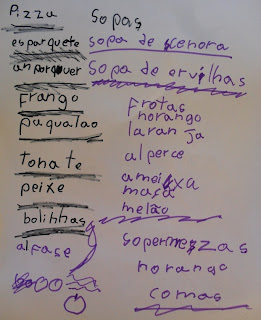 Pizza
esparquete
anporquer
Frango
paqualao
tonate
peixe
bolinhas
alfase
Sopas
sopa de senora
Sopa de ervilhas
frotas
norango
laranja
alperce
ameixa
masã
melão
sopermezas
norango
comas